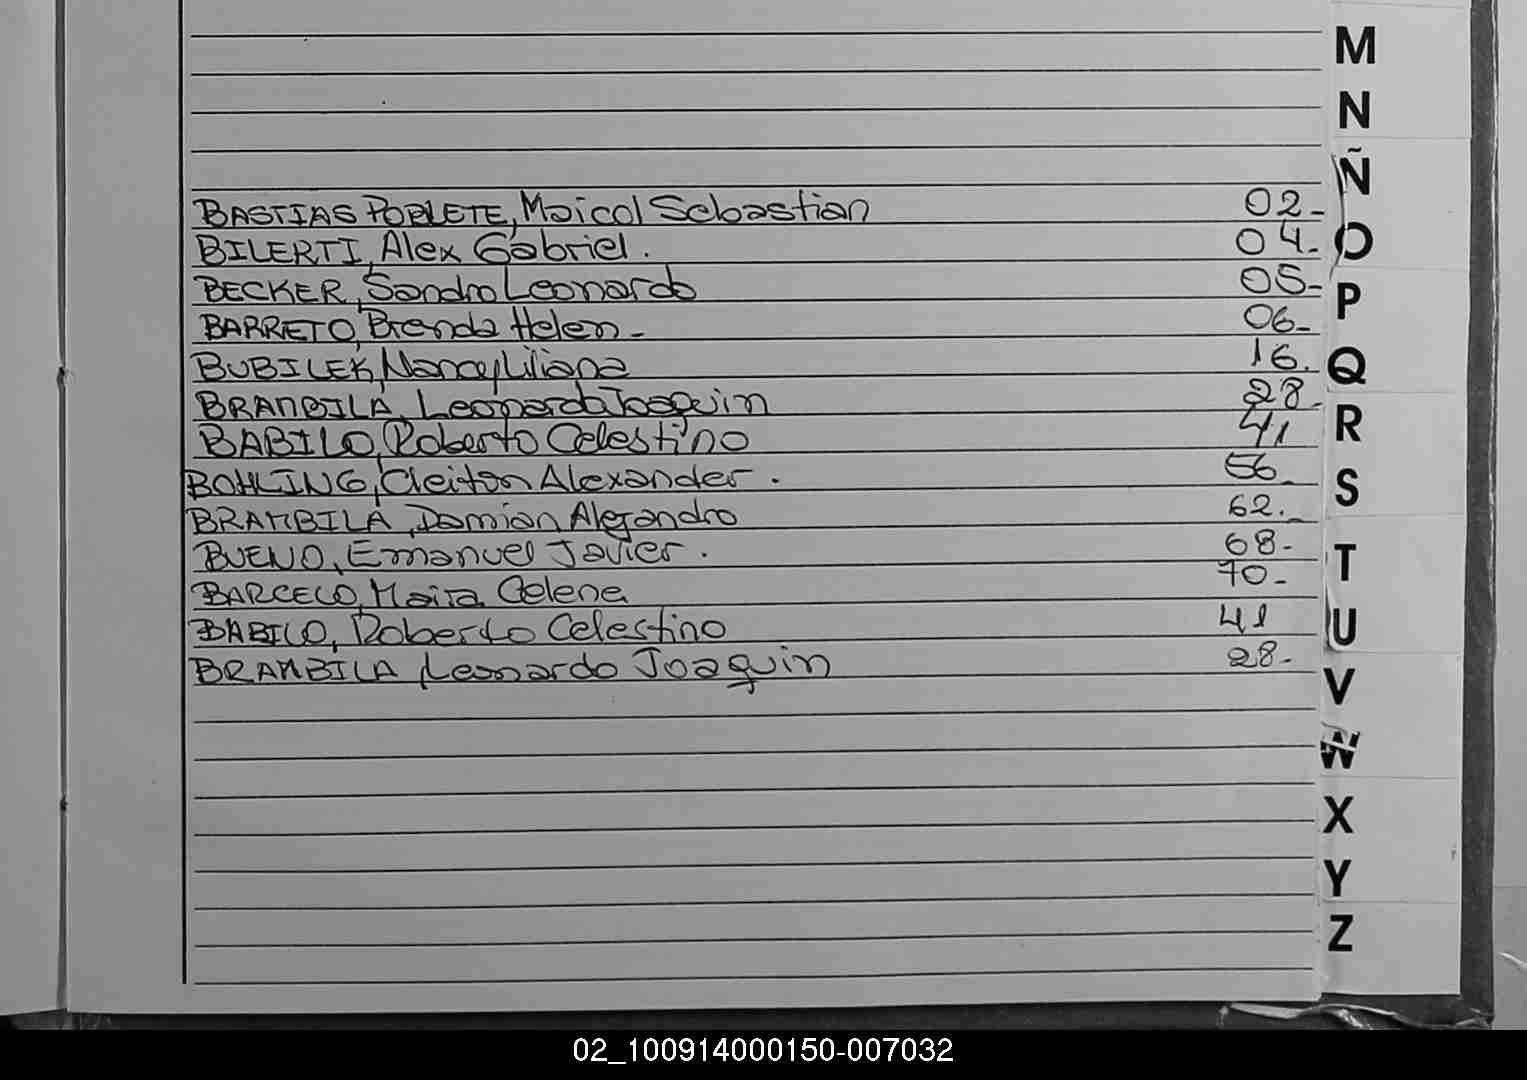 BASTIAS POBLETE, Maicol Sebastian 02-
BILERTI, Alex Gabriel. 04-
BECKER, Sandro Leonardo 05-
BARRETO, Brenda Helen- 06-
BUBILEK, Nancy Liliana 16.
BRAMBILA, Leonardo Joaquin 28-
BABILO, Roberto Celestino 41
BOHLING, Cleiton Alexander. 56-
BRAMBILA, Damian Alejandro 62.-
BUENO, Emanuel Javier. 68-
BARCELO, Maira Celene 70-
BABILO, Roberto Celestino 41
BRAMBILA, Leonardo Joaquin 28-
M
N
Ñ
O
P
Q
R
S
T
U
V
W
X
Y
Z
02_100914000150-007032